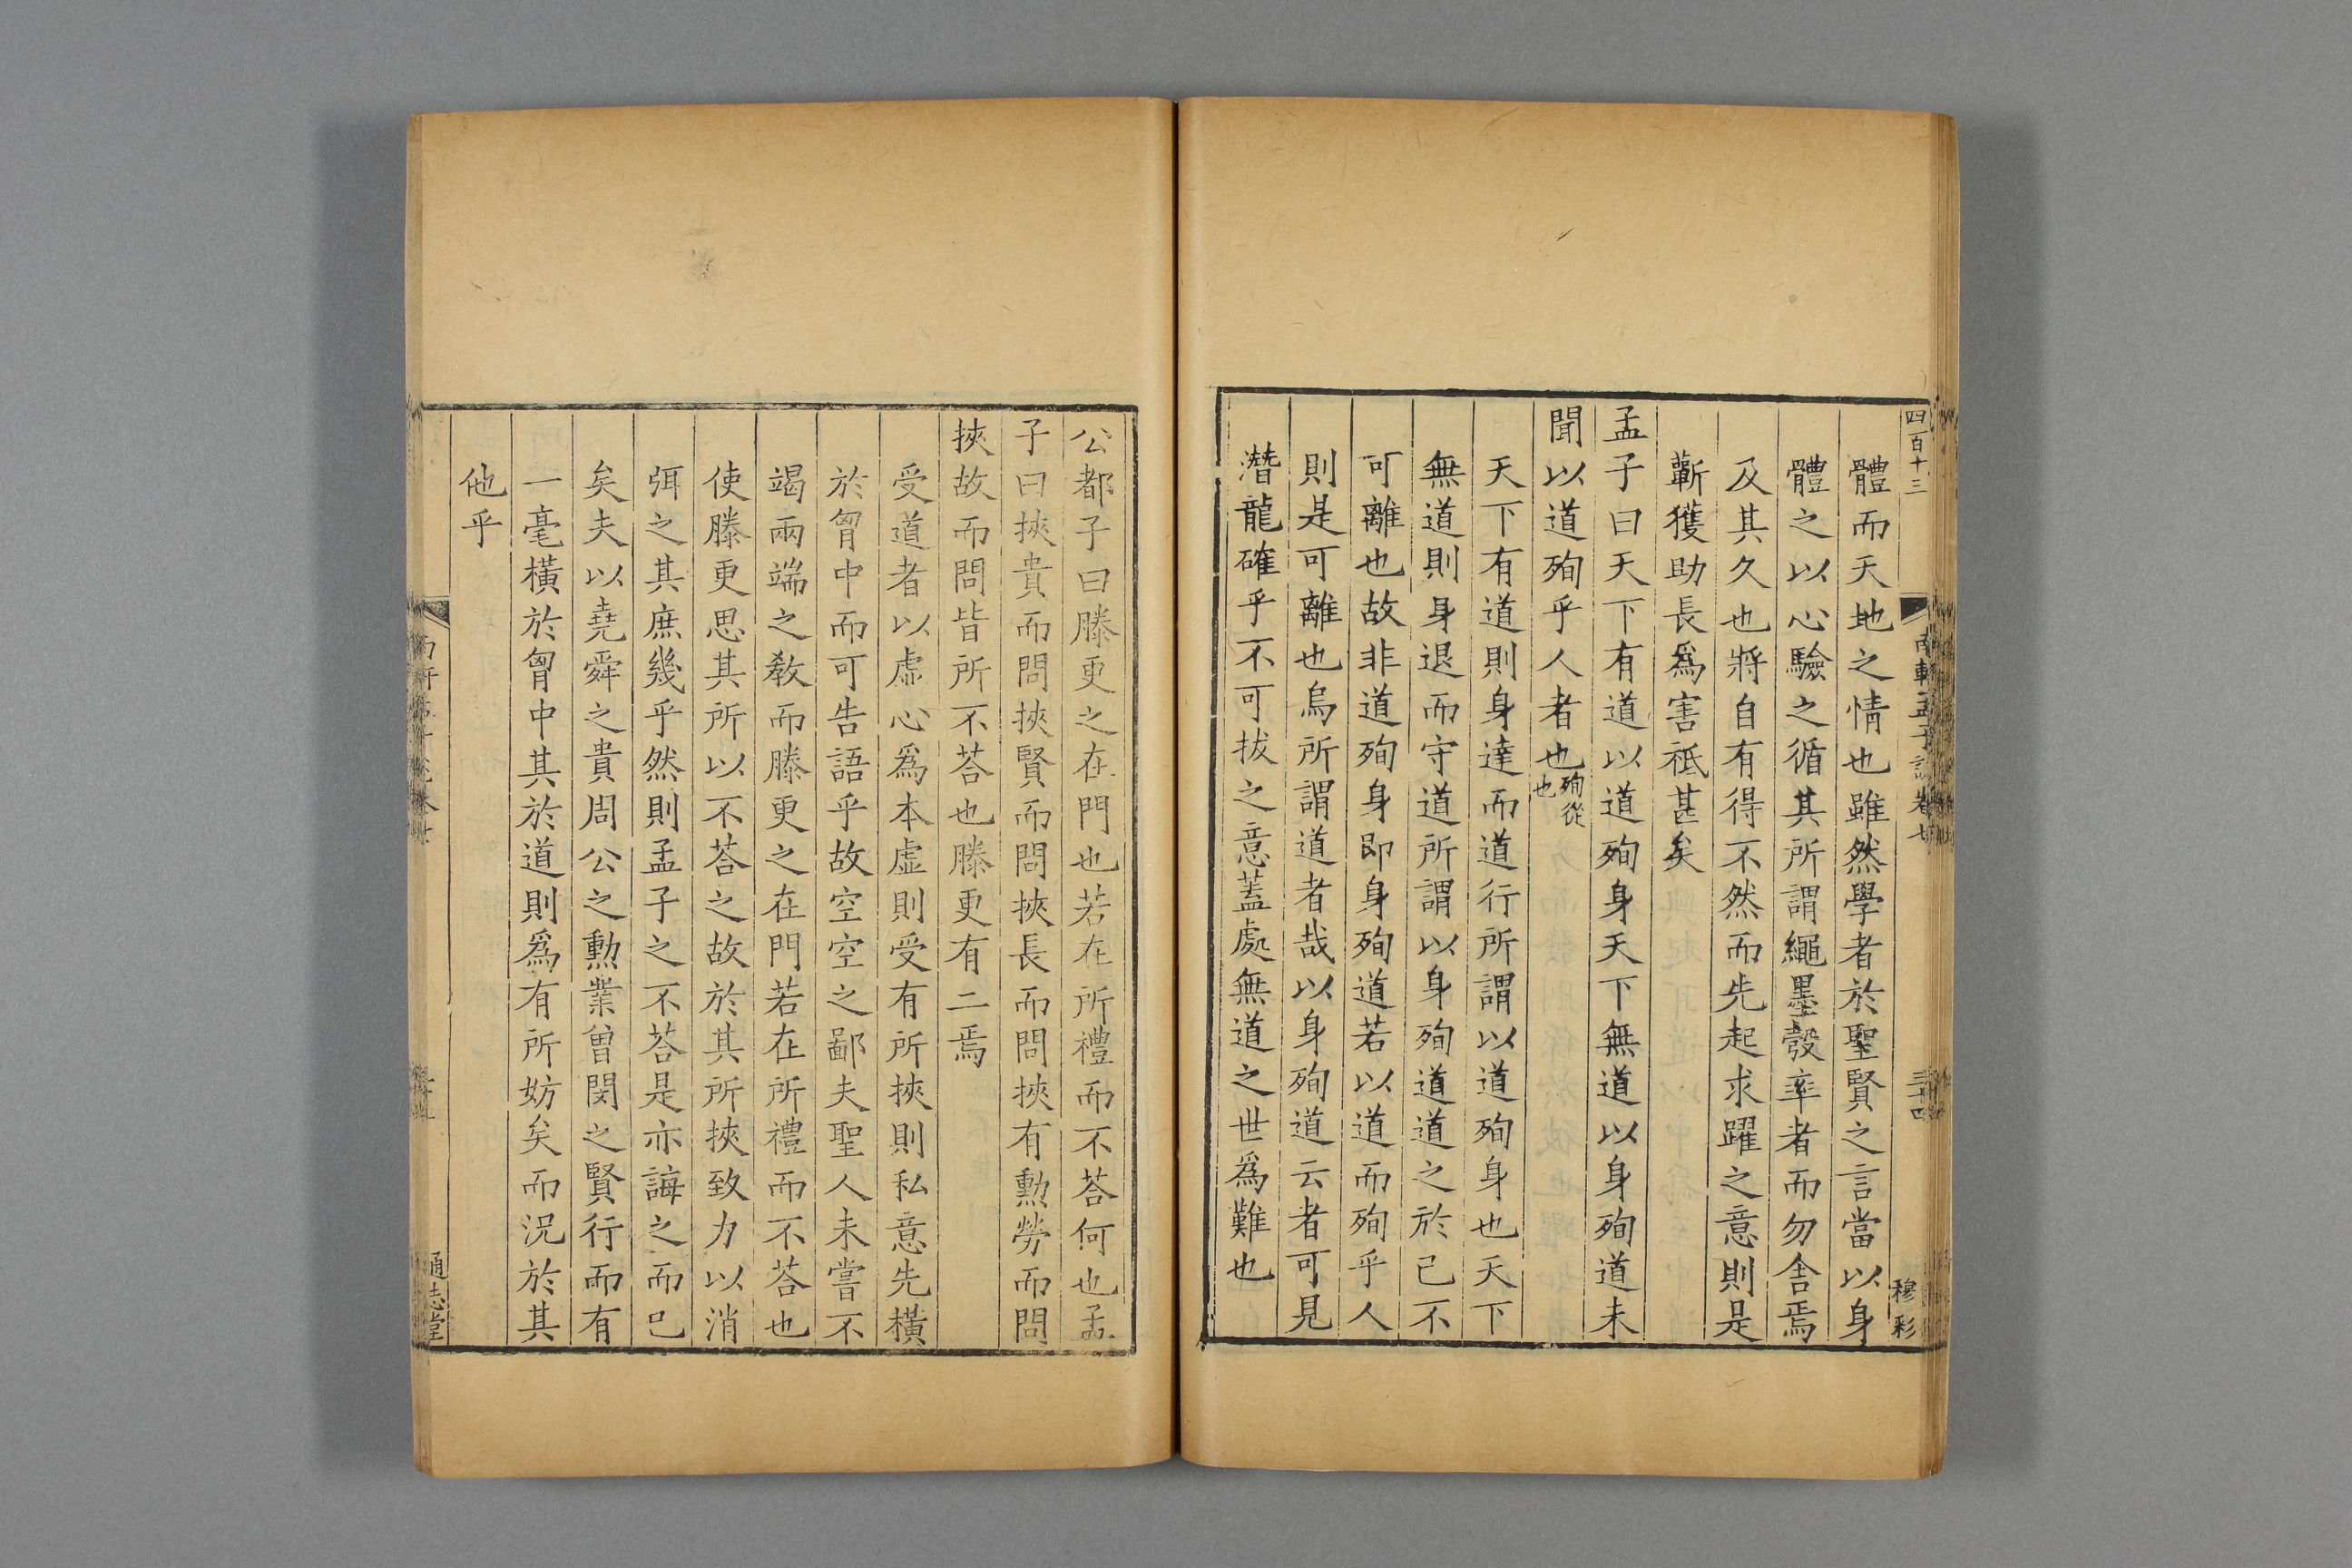 四百十三
南軒孟子說卷七
三十四
穆彩
體而天地之情也雖然學者於聖賢之言當以身
體之以心驗之循其所謂繩墨彀率者而勿舍焉
及其久也將自有得不然而先起求躍之意則是
蘄獲助長爲害祗甚矣
孟子曰天下有道以道殉身天下無道以身殉道未
聞以道殉乎人者也殉從也
天下有道則身達而道行所謂以道殉身也天下
無道則身退而守道所謂以身殉道道之於己不
可離也故非道殉身即身殉道若以道而殉乎人
則是可離也烏所謂道者哉以身殉道云者可見
潛龍確乎不可拔之意蓋處無道之世爲難也
公都子曰滕更之在門也若在所禮而不荅何也孟
子曰挾貴而問挾賢而問挾長而問挾有勲勞而問
挾故而問皆所不荅也滕更有二焉
受道者以虛心爲本虛則受有所挾則私意先橫
於胷中而可告語乎故空空之鄙夫聖人未嘗不
竭兩端之教而滕更之在門若在所禮而不荅也
使滕更思其所以不荅之故於其所挾致力以消
弭之其庶幾乎然則孟子之不荅是亦誨之而已
矣夫以堯舜之貴周公之勲業曾閔之賢行而有
一毫橫於胷中其於道則爲有所妨矣而況於其
他乎
通志堂